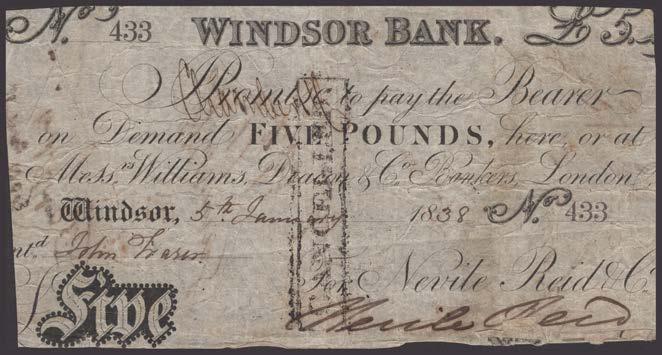 No. 433 WINDSOR BANK. £5
Promise to pay the Bearer
on Demand FIVE POUNDS, here or at
Mess.rs Williams, Deacon & Co. Bankers, London
Windsor, 5th January 1838 No. 433
nt.d John
For Nevile Reid & Co.
Five Nevile Reid